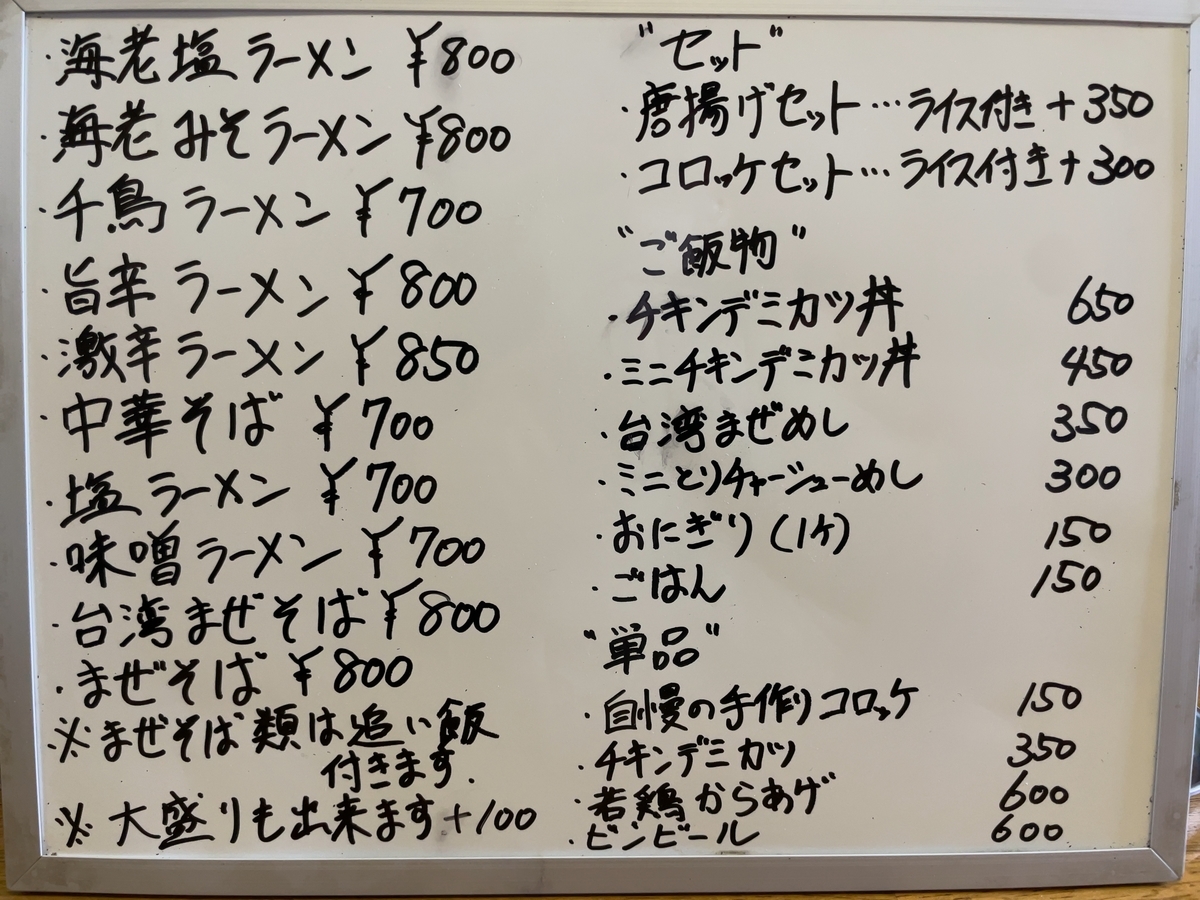 ・海老塩ラーメン ¥800
・海老みそラーメン ¥800
・千鳥ラーメン ¥700
・旨辛ラーメン ¥800
・激辛ラーメン ¥850
・中華そば ¥700
・塩ラーメン ¥700
・味噌ラーメン ¥700
・台湾まぜそば ¥800
・まぜそば ¥800
※まぜそば類は追い飯
付きます.
※大盛りも出来ます+100
"セット"
・唐揚げセット…ライス付き+350
・コロッケセット…ライス付き+300
"ご飯物"
・チキンデミカツ丼 650
・ミニチキンデミカツ丼 450
・台湾まぜめし 350
・ミニとりチャーシューめし 300
・おにぎり(1ケ) 150
・ごはん 150
"単品"
・自慢の手作りコロッケ 150
・チキンデミカツ 350
・若鶏からあげ 600
・ビンビール 600